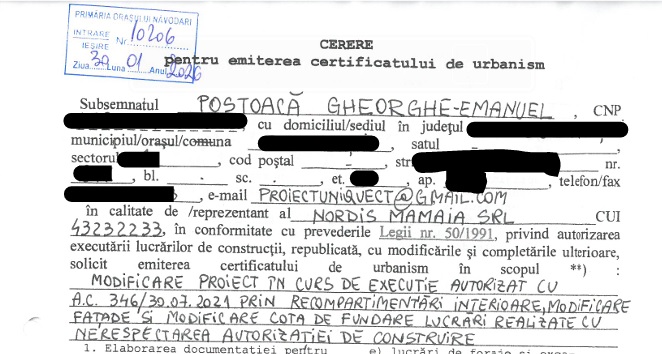 PRIMĂRIA ORAȘULUI NĂVODARI
INTRARE
IEȘIRE Nr. 10206
Ziua 30 Luna 01 Anul 2026
CERERE
pentru emiterea certificatului de urbanism
Subsemnatul POSTOACĂ GHEORGHE-EMANUEL, CNP
, cu domiciliul/sediul în județul
municipiul/orașul/comuna , satul -,
sectorul , cod poștal -, str. nr.
, bl. - sc. -, et. , ap. , telefon/fax
, e-mail PROIECTUNIQUECT@GMAIL.COM
în calitate de /reprezentant al NORDIS MAMAIA SRL CUI
43232233, în conformitate cu prevederile Legii nr. 50/1991, privind autorizarea
executării lucrărilor de construcții, republicată, cu modificările și completările ulterioare,
solicit emiterea certificatului de urbanism în scopul **) :
MODIFICARE PROIECT ÎN CURS DE EXECUTIE AUTORIZAT CU
A.C. 346/30.07.2021 PRIN RECOMPARTIMENTĂRI INTERIOARE, MODIFICARE
FATADE SI MODIFICARE COTA DE FUNDARE LUCRĂRI REALIZATE CU
NERESPECTAREA AUTORIZATIEI DE CONSTRUIRE
1. Elaborarea documentației pentru e) lucrări de foraje și